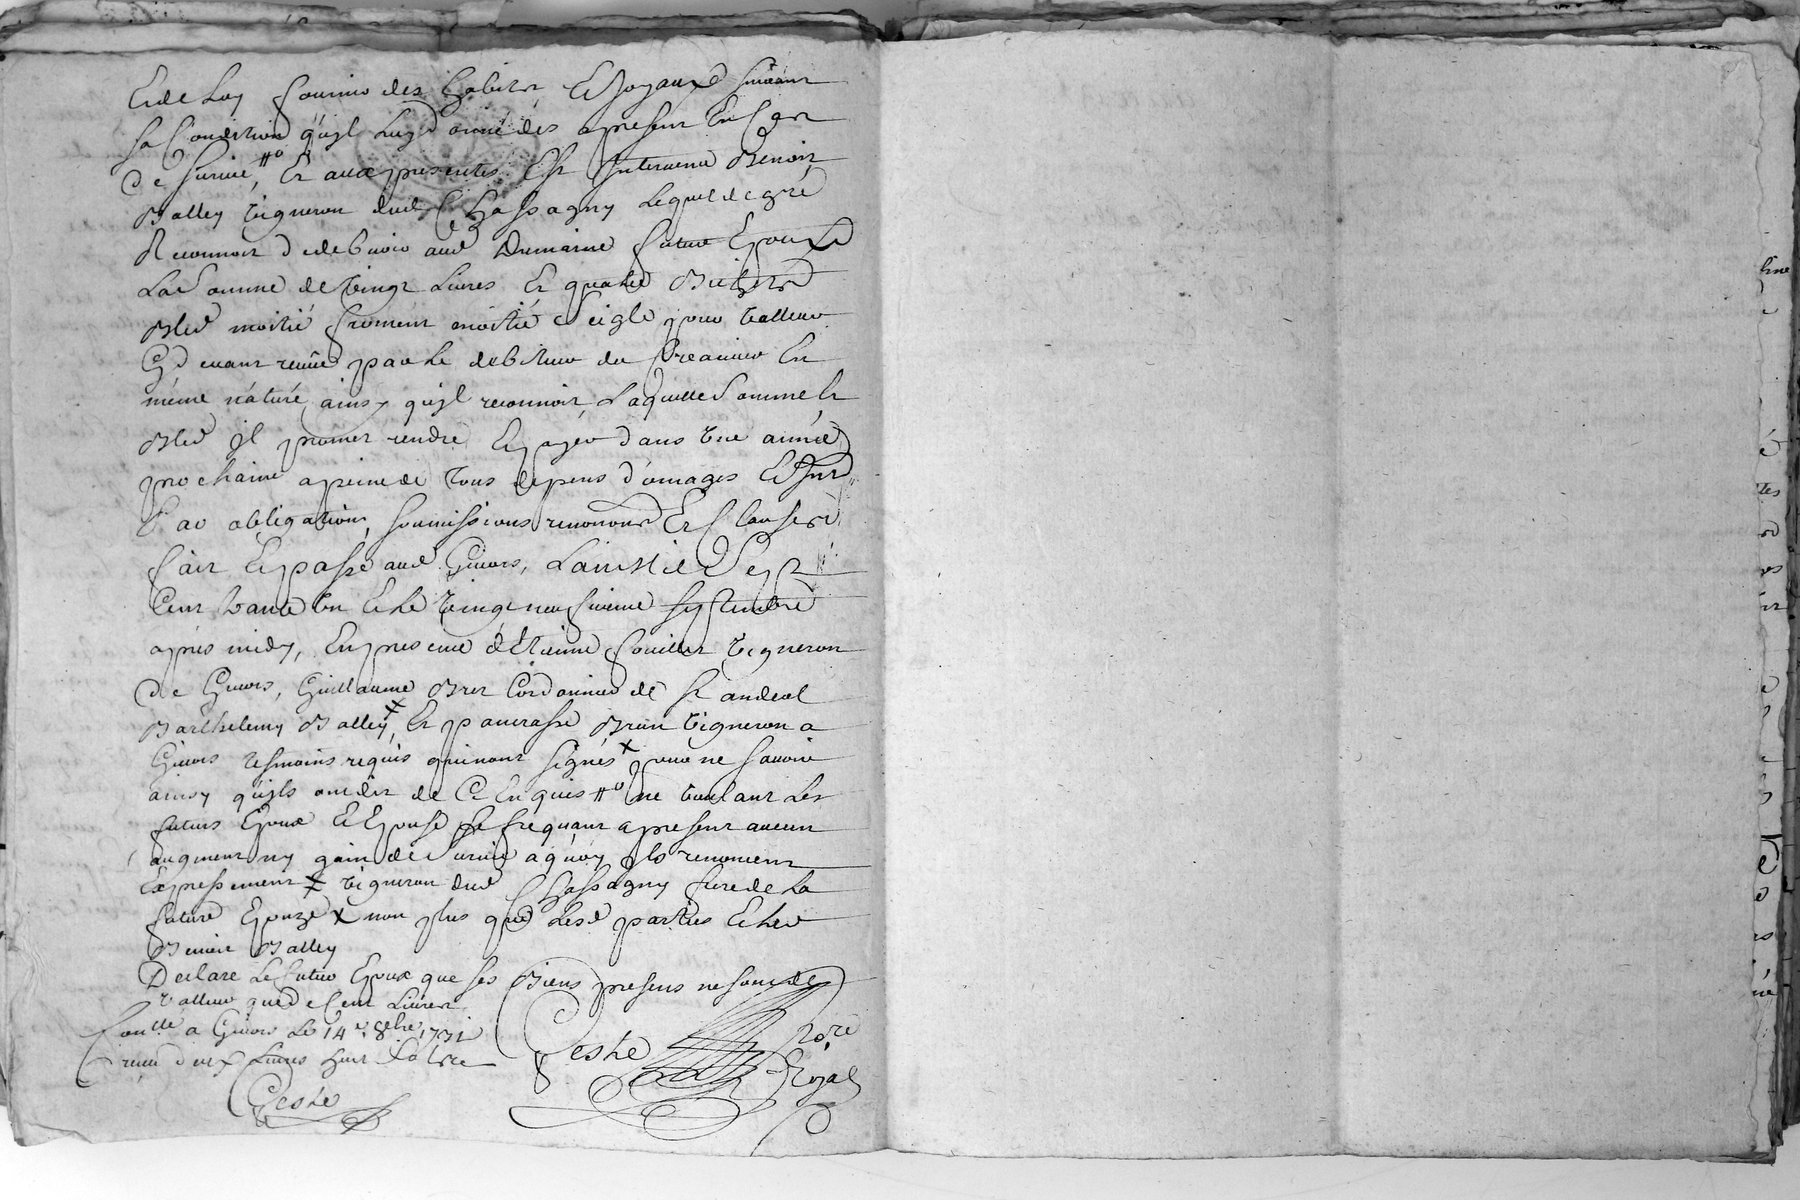 Et de luy fournir des habits Et Joyaux suivant
sa Condition qu'jl luy donne dés apresent En Cas
de survie, #o Et aux presentes Est Intervenu Benoit
Balley vigneron dud Chassagny Lequel de gré
Reconnoit debvoir aud Dumaine futur Epoux
La Somme de vingt Livres Et quatre Bichets
Bled moitié froment moitié seigle pour valleur
Cy devant reçüe par le debiteur du Creancier En
méme náturé, ainsy qu'jl reconnoit, Laquelle Somme Et
Bled jl promet rendre Et payer dans une année
prochaine apeine de tous depens d'omages Et Jnt
Par obligation, soumissions renonond Et Clauses
fait Et passé aud Givors, L'an Mil Sept
Cent trante un Et le vingt neufvieme septembre
aprés midy, En presence d'Etienne fouillet vigneron
de Givors, Guillaume Bret Cordonnier de St andeol
Barthelemy Balley, ⵣ Et pancrasse Brun vigneron a
Givors tesmoins requis qui n'ont signés x pour ne savoir
ainsy qu'jls ont dit de Ce Enquis #o ne voulant les
futurs Epoux Et Epouse se apresent aucun
augment ny gain de Survie aquoy jls renoncent
Expressement ⵣ vigneron dud Chassagny frere de la
future Epouze x non plus que lesd parties Et led
Benoit Balley
Declare le futur Epoux que ses Biens presens ne sont de
valleur que de Cent Livres
Conllé a Givors Le 14e 8bre 1731
reçu deux Livres huit
Geste
Geste Nore
Royal